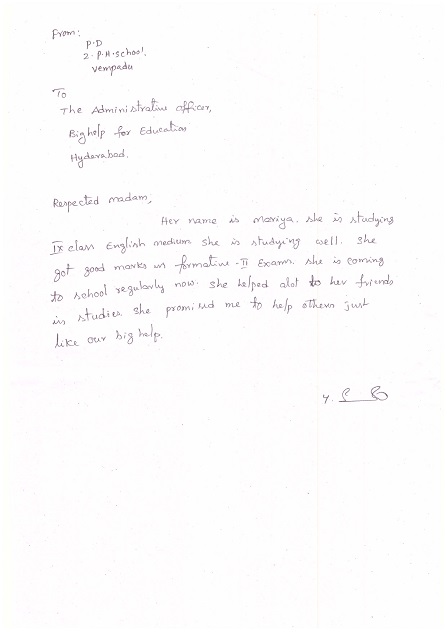 From:
P.D
Z.P.H.School,
Vempadu
To
The Administrative officer,
Bighelp for Education
Hyderabad.
Respected madam,
Her name is mariya. she is studying
IX class English medium. She is studying well. She
got good marks in formative-II Exams. she is coming
to school regularly now. She helped alot to her friends
in studies. She promised me to help others just
like our big help.
Y.